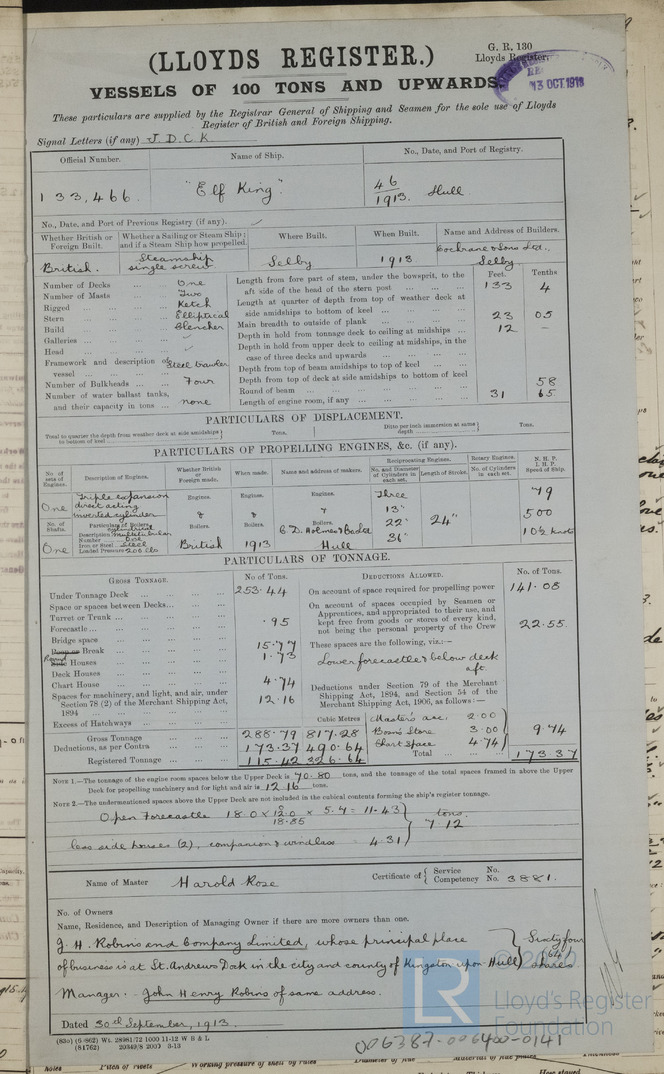 G. R. 130
(LLOYDS REGISTER.)
Lloyds Register.
VESSELS OF 100 TONS AND UPWARDS.
13 OCT 1913
These particulars are supplied by the Registrar General of Shipping and Seamen for the sole use of Lloyds
Register of British and Foreign Shipping.
Signal Letters (if any) J. D. C. K.
Official Number. Name of Ship. No., Date, and Port of Registry.
133,466. "Elf King" 46/1913. Hull.
No., Date, and Port of Previous Registry (if any).
Whether British or Foreign Built. Whether a Sailing or Steam Ship; and if a Steam Ship how propelled. Where Built. When Built. Name and Address of Builders.
British. Steamship single screw Selby 1913 Cochrane & Sons Ltd., Selby
Feet. Tenths
Number of Decks ... One Length from fore part of stem, under the bowsprit, to the aft side of the head of the stern post ... 133 4
Number of Masts ... Two Length at quarter of depth from top of weather deck at side amidships to bottom of keel ...
Rigged ... Ketch
Stern ... Elliptical Main breadth to outside of plank ... 23 05
Build ... Clencher Depth in hold from tonnage deck to ceiling at midships ... 12 –
Galleries ... Depth in hold from upper deck to ceiling at midships, in the case of three decks and upwards ...
Head ...
Framework and description of vessel ... Steel trawler Depth from top of beam amidships to top of keel ...
Number of Bulkheads ... Four Depth from top of deck at side amidships to bottom of keel
Number of water ballast tanks, and their capacity in tons ... none Round of beam ... 58
Length of engine room, if any ... 31 65
PARTICULARS OF DISPLACEMENT.
Total to quarter the depth from weather deck at side amidships to bottom of keel ... Tons. Ditto per inch immersion at same depth ... Tons.
PARTICULARS OF PROPELLING ENGINES, &c. (if any).
No. of sets of Engines. Description of Engines. Whether British or Foreign made. When made. Name and address of makers. Reciprocating Engines. Rotary Engines. N. H. P. I. H. P. Speed of Ship.
No. and Diameter of Cylinders in each set. Length of Stroke. No. of Cylinders in each set.
One Triple expansion direct acting inverted cylinder Engines. & Engines. & Engines. & Three 13" 22" 36" 24" 79 500 10½ knots
No. of Shafts. Particulars of Boilers. Boilers. Boilers. Boilers.
Description
Number One
Iron or Steel Steel
Loaded Pressure 200 lbs
One British 1913 Hull
PARTICULARS OF TONNAGE.
GROSS TONNAGE. No of Tons. DEDUCTIONS ALLOWED. No. of Tons.
Under Tonnage Deck ... 253.44 On account of space required for propelling power 141.08
Space or spaces between Decks ... On account of spaces occupied by Seamen or Apprentices, and appropriated to their use, and kept free from goods or stores of every kind, not being the personal property of the Crew 22.55
Turret or Trunk ...
Forecastle ... .95
Bridge space ... These spaces are the following, viz:—
Poop or Break ... 15.77 Lower forecastle & below deck aft.
Round Side Houses ... 1.73
Deck Houses ...
Chart House ... 4.74
Spaces for machinery, and light, and air, under Section 78 (2) of the Merchant Shipping Act, 1894 ... 12.16 Deductions under Section 79 of the Merchant Shipping Act, 1894, and Section 54 of the Merchant Shipping Act, 1906, as follows:—
Excess of Hatchways ... Cubic Metres Master's acc. 2.00
Gross Tonnage 288.79 817.28 Bosn's Store 3.00 9.74
Deductions, as per Contra ... 173.37 490.64 Chart Space 4.74
Registered Tonnage ... 115.42 326.64 Total ... 173.37
NOTE 1.—The tonnage of the engine room spaces below the Upper Deck is 70.80 tons, and the tonnage of the total spaces framed in above the Upper
Deck for propelling machinery and for light and air is 12.16 tons.
NOTE 2.—The undermentioned spaces above the Upper Deck are not included in the cubical contents forming the ship's register tonnage.
Open Forecastle 18.0 × × 5.7 = 11.43
18.85 tons. 7.12
less side houses (2), companion & windlass = 4.31
Name of Master Harold Rose Certificate of Service No. Competency No. 3881.
No. of Owners
Name, Residence, and Description of Managing Owner if there are more owners than one.
J. H. Robins and Company Limited, whose principal place Sixty four
of business is at St. Andrews Dock in the city and county of Kingston upon Hull (64) shares
Manager: John Henry Robins of same address.
Dated 30th September, 1913.
(830) (6862) Wt. 28981/72 1000 11-12 W B & L
(81762) 20349/8 2000 3-13
LR
© 2020
Lloyd's Register
Foundation
006387-006400-0141